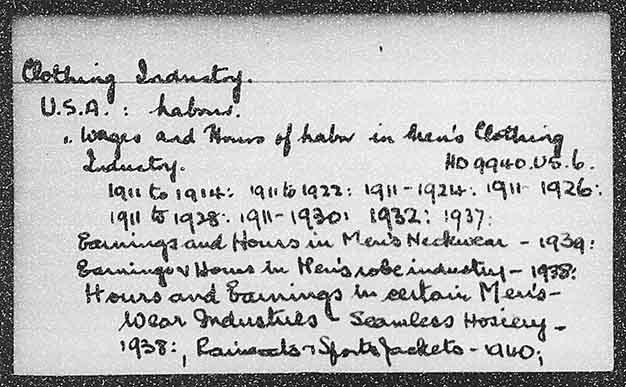 Clothing Industry.
U.S.A. : Labour.
Wages and Hours of Labor in Men's Clothing
Industry. HD9940.US.6.
1911 to 1914: 1911 to 1922: 1911-1924: 1911-1926:
1911 to 1928: 1911-1930: 1932: 1937:
Earnings and Hours in Men's Neckwear - 1939:
Earnings & Hours in Men's robe industry - 1938:
Hours and Earnings in certain Men's-
Wear Industries - Seamless Hosiery -
1938:, Raincoats & Sports Jackets - 1940;